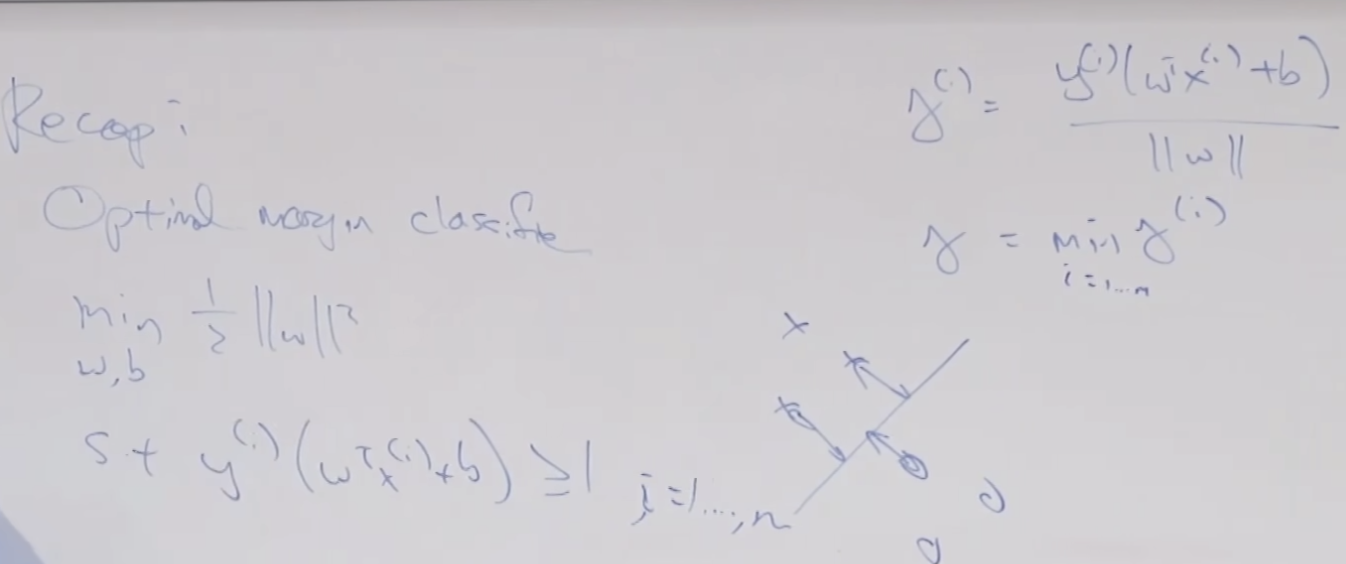 Recap:
Optimal margin classifie
min 1/2 ||w||²
w,b
s t y^(i) (w^T x^(i) + b) ≥ 1 i=1...,n
γ^(i) = y^(i) (w^T x^(i) + b) / ||w||
γ = min γ^(i)
i=1...n